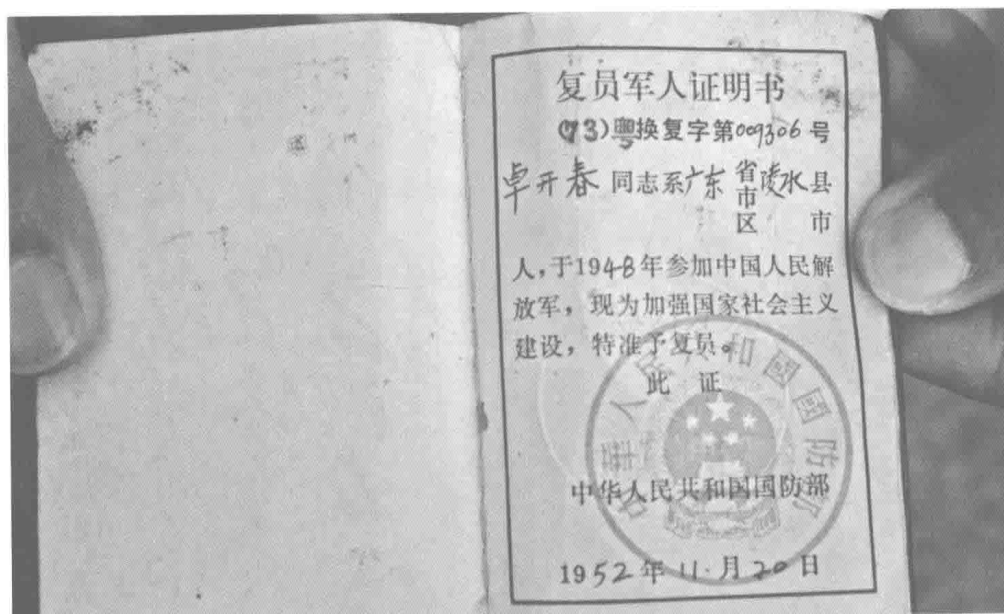 复员军人证明书
(73)粤换复字第009306号
卓开春同志系广东省市区陵水县市
人，于1948年参加中国人民解
放军，现为加强国家社会主义
建设，特准予复员。
此证
中華人民共和國國防部
中华人民共和国国防部
1952年11.月20日